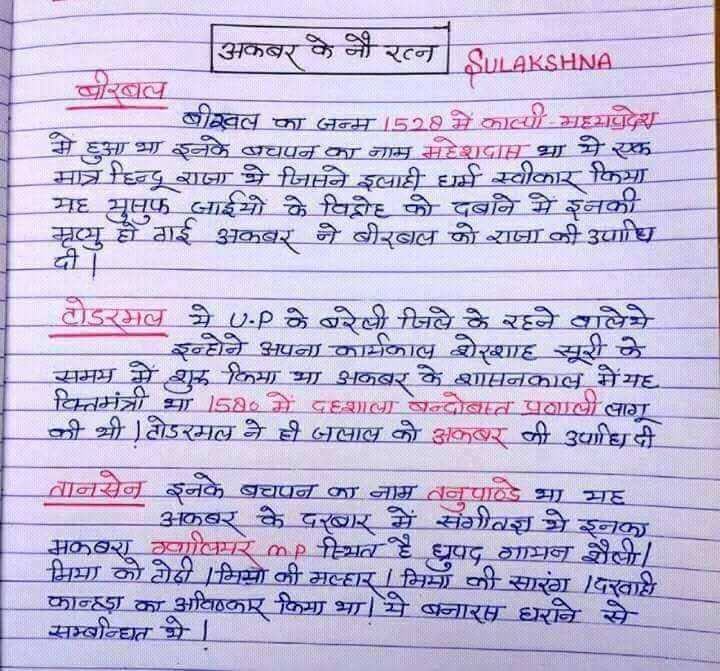 अकबर के नौ रत्न
SULAKSHNA
बीरबल
बीरबल का जन्म 1528 में काल्पी - मध्यप्रदेश
में हुआ था इनके बचपन का नाम महेशदास था ये एक
मात्र हिन्दू राजा थे जिसने इलाही धर्म स्वीकार किया
यह युसुफ जाईयो के विद्रोह को दबाने में इनकी
मृत्यु हो गई अकबर ने बीरबल को राजा की उपाधि
दी |
टोडरमल ये U.P के बरेली जिले के रहने वाले थे
इन्होने अपना कार्यकाल शेरशाह सूरी के
समय में शुरू किया था अकबर के शासनकाल में यह
वित्तमंत्री था 1580 में दहशाला बन्दोबस्त प्रणाली लागू
की थी | टोडरमल ने ही जलाल को अकबर की उपाधि दी
तानसेन इनके बचपन का नाम तनुपाण्डे था यह
अकबर के दरबार में संगीतज्ञ थे इनका
मकबरा ग्वालियर M.P स्थित है ध्रुपद गायन शैली |
मियां को टोडी | मियां की मल्हार | मियां की सारंग | दरबारी
कान्हड़ा का अविष्कार किया था | ये बनारस घराने से
सम्बन्धित थे |